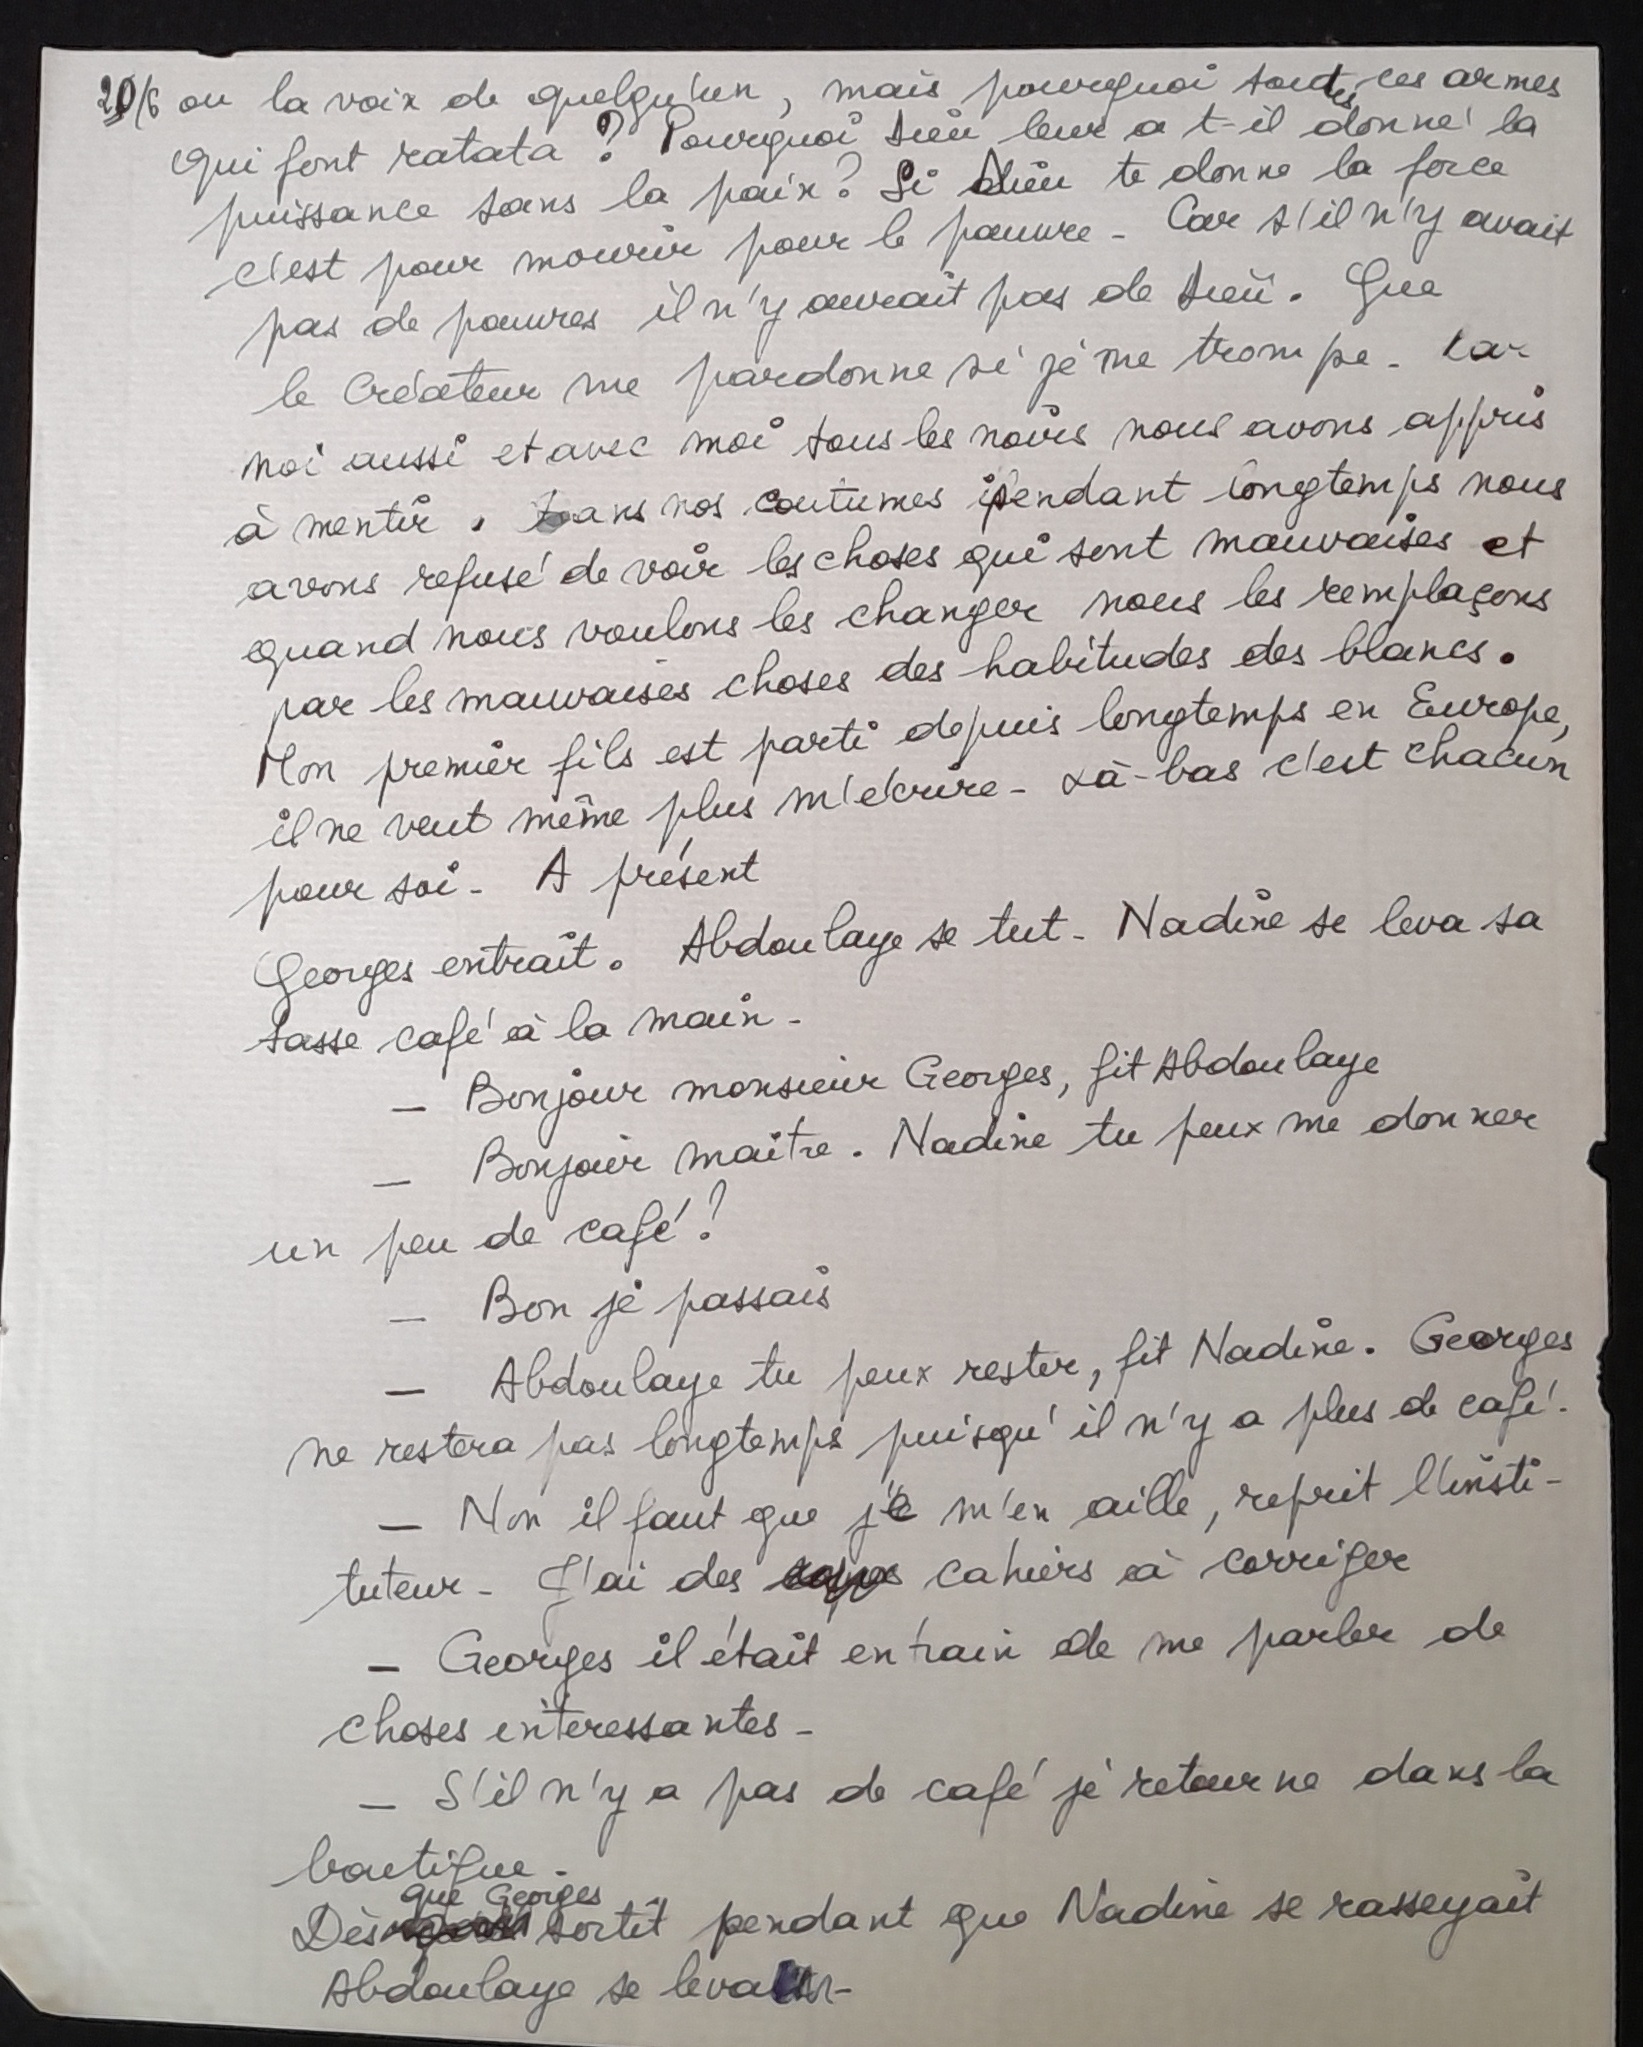 20/6 ou la voix de quelqu'un, mais pourquoi toutes ces armes
qui font ratata ? Pourquoi Dieu leur a t-il donné la
puissance sans la paix ? Si Dieu te donne la force
c'est pour mourir pour le pauvre - Car s'il n'y avait
pas de pauvres il n'y aurait pas de Dieu. Que
le Créateur me pardonne si je me trompe - Car
moi aussi et avec moi tous les noirs nous avons appris
à mentir. Dans nos coutumes pendant longtemps nous
avons refusé de voir les choses qui sont mauvaises et
quand nous voulons les changer nous les remplaçons
par les mauvaises choses des habitudes des blancs.
Mon premier fils est parti depuis longtemps en Europe,
il ne veut même plus m'écrire - Là-bas c'est chacun
pour soi - A présent
Georges entrait. Abdoulaye se tut - Nadine se leva sa
tasse café à la main -
— Bonjour monsieur Georges, fit Abdoulaye
— Bonjour maître. Nadine tu peux me donner
un peu de café ?
— Bon je passais
— Abdoulaye tu peux rester, fit Nadine. Georges
ne restera pas longtemps puisqu'il n'y a plus de café.
— Non il faut que je m'en aille, reprit l'insti-
tuteur - J'ai des cahiers à corriger
— Georges il était en train de me parler de
choses intéressantes -
— S'il n'y a pas de café je retourne dans la
boutique -
que Georges
Dès sortit pendant que Nadine se rasseyait
Abdoulaye se leva -